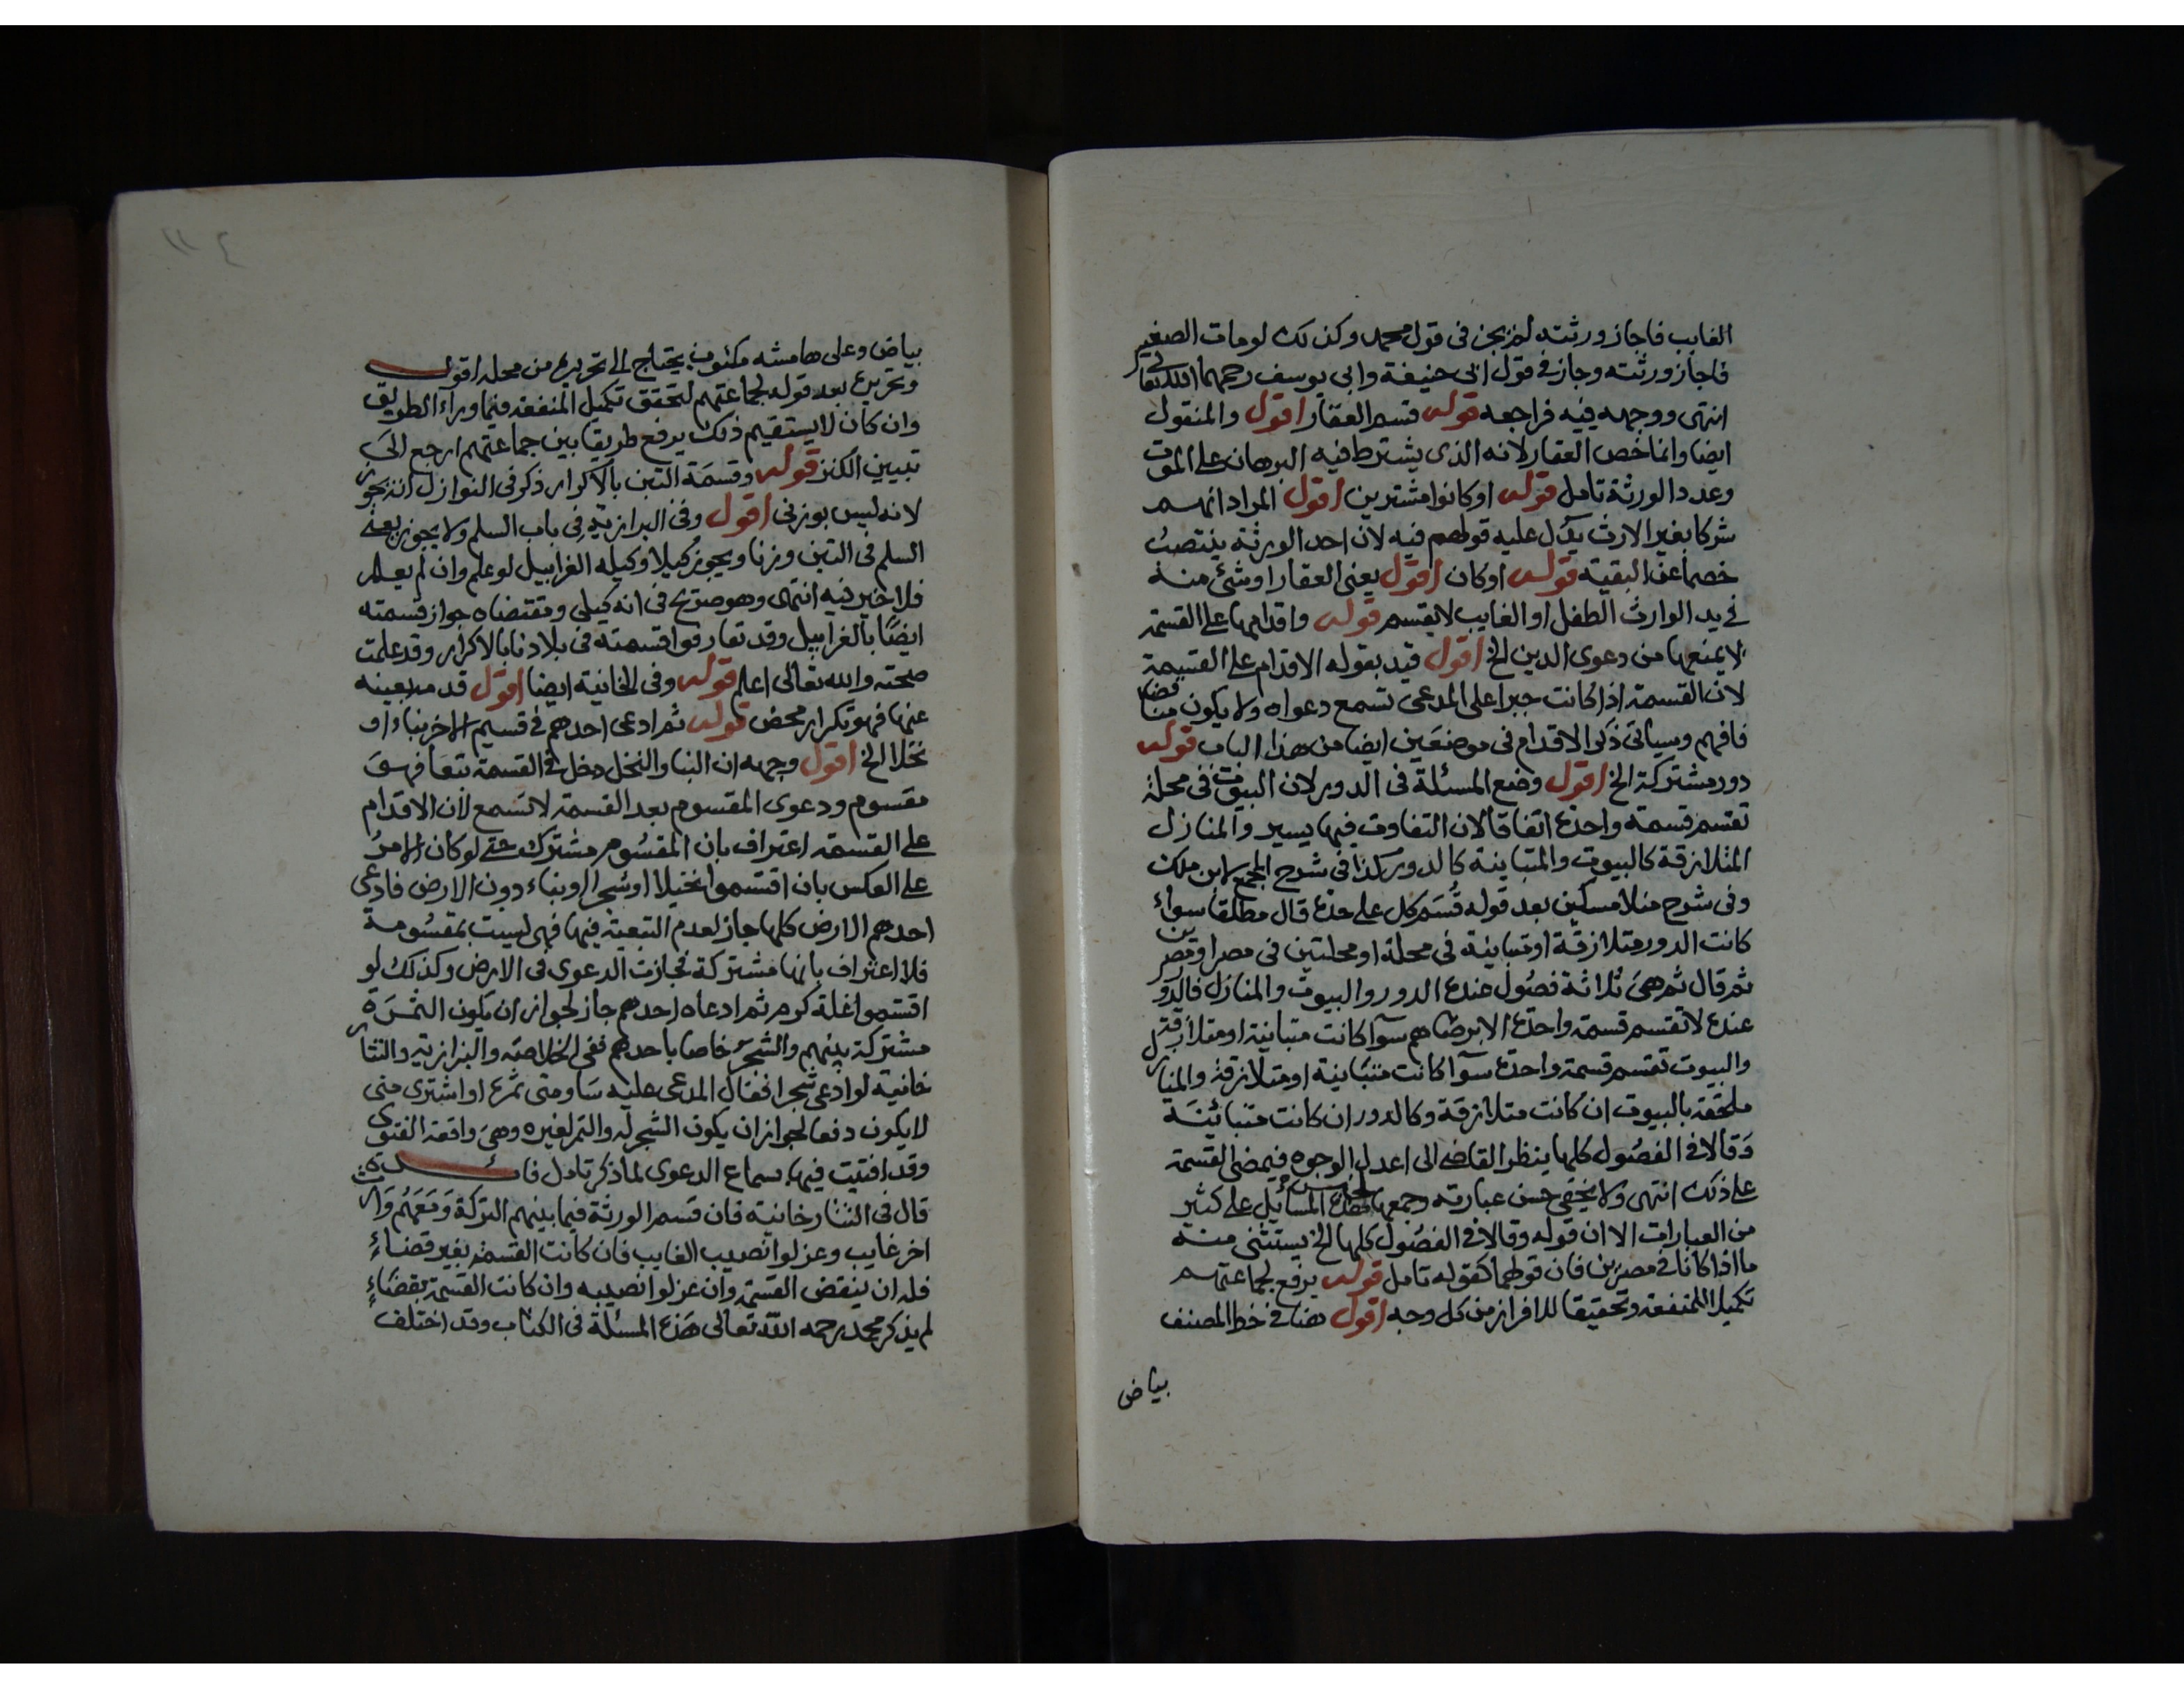 الغايب فاجاز ورثته لم يجز في قول محمد وكذلك لو مات الصغير
فاجاز ورثته وجاز في قول ابي حنيفة وابي يوسف رحمهما الله تعالى
انتهى ووجهه فيه فراجعه قوله قسم العقار اقول والمنقول
ايضا وانما خص العقار لانه الذي يشترط فيه البرهان على الموت
وعدد الورثة تامل قوله او كانوا مشترين اقول المراد انهم
شركا بغير الارث يدل عليه قولهم فيه لان احد الورثة ينتصب
خصما عن البقية قوله او كان اقول يعني العقار او شئ منه
في يد الوارث الطفل او الغايب لا يقسم قوله واقدامها على القسمة
لا يمنعها من دعوى الدين الخ اقول قيد بقوله الاقدام على القسيمة
لان القسمة اذا كانت جبرا على المدعي تسمع دعواه ولا يكون مناقضا
فافهم وسياتي ذكر الاقدام في موضعين ايضا من هذا الباب قوله
دور مشتركة الخ اقول وضع المسئلة في الدور لان البيوت في محلة
تقسم قسمة واحدة اتفاقا لان التفاوت فيها يسير والمنازل
المتلازقة كالبيوت والمتباينة كالدور كذا في شرح المجمع لابن ملك
وفي شرح منلا مسكين بعد قوله قسم كل على حدة قال مطلقا سواء
كانت الدور متلازقة او متباينة في محلة او محلتين في مصر او مصرين
ثم قال ثم هي ثلاثة فصول عنده الدور والبيوت والمنازل فالدور
عنده لا تقسم قسمة واحدة الا برضاهم سوا كانت متباينة او متلازقة
والبيوت تقسم قسمة واحدة سوآ كانت متباينة او متلازقة والمنازل
ملحقة بالبيوت ان كانت متلازقة وكالدور ان كانت متبائنة
وقالا في الفصول كلها ينظر القاضي الى اعدل الوجوه فيمضي القسمة
على ذلك انتهى ولا يخفى حسن عبارته وجمعها المسائل على كثير
من العبارات الا ان قوله وقالا في الفصول كلها الخ يستثنى منه
ما اذا كانا في مصرين فان قولهما كقوله تامل قوله يرفع لجماعتهم
تكميلا للمنفعة وتحقيقا للافراز من كل وجه اقول هنا في خط المصنف
بياض
١١٤
بياض وعلى هامشه مكتوب يحتاج الى تحريره من محله اقول
وتحريره بعد قوله لجماعتهم لتحقق تكميل المنفعة فيما وراء الطريق
وان كان لا يستقيم ذلك يرفع طريقا بين جماعتهم ارجع الى
تبيين الكنز قوله وقسمة التبن بالاكرار ذكر في النوازل انه يجوز
لانه ليس بوزني اقول وفي البزازية في باب السلم ولا يجوز يعني
السلم في التبن وزنا ويجوز كيلا وكيله الغرابيل لو علم وان لم يعلم
فلا خير فيه انتهى وهو صريح في انه كيلي ومقتضاه جواز قسمته
ايضا بالغرابيل وقد تعارفوا قسمته في بلادنا بالاكرار وقد علمت
صحته والله تعالى اعلم قوله وفي الخانية ايضا اقول قد مر بعينه
عنها فهو تكرار محض قوله ثم ادعى احدهم في قسيم الاخر بناء او
نخلا الخ اقول وجهه ان البنا والنخل دخل في القسمة تبعا فهو
مقسوم ودعوى المقسوم بعد القسمة لا تسمع لان الاقدام
على القسمة اعتراف بان المقسوم مشترك حتى لو كان الامر
على العكس بان اقتسموا نخيلا او شجرا وبناء دون الارض فادعى
احدهم الارض كلها جاز لعدم التبعية فيها فهي ليست بمقسومة
فلا اعتراف بانها مشتركة فجازت الدعوى في الارض وكذلك لو
اقتسموا غلة كرم ثم ادعاه احدهم جاز لجواز ان يكون الثمرة
مشتركة بينهم والشجر خاصا باحدهم ففي الخلاصة والبزازية والتتار
خانية لو ادعى شجرا فقال المدعى عليه ساومني ثمره او اشترى مني
لا يكون دفعا لجواز ان يكون الشجر له والثمر لغيره وهي واقعة الفتوى
وقد افتيت فيها بسماع الدعوى لما ذكر تامل فائدة
قال في التتارخانية فان قسم الورثة فيما بينهم التركة ومعهم وارث
اخر غايب وعزلوا نصيب الغايب فان كانت القسمة بغير قضاء
فله ان ينقض القسمة وان عزلوا نصيبه وان كانت القسمة بقضاء
لم يذكر محمد رحمه الله تعالى هذه المسئلة في الكتاب وقد اختلف